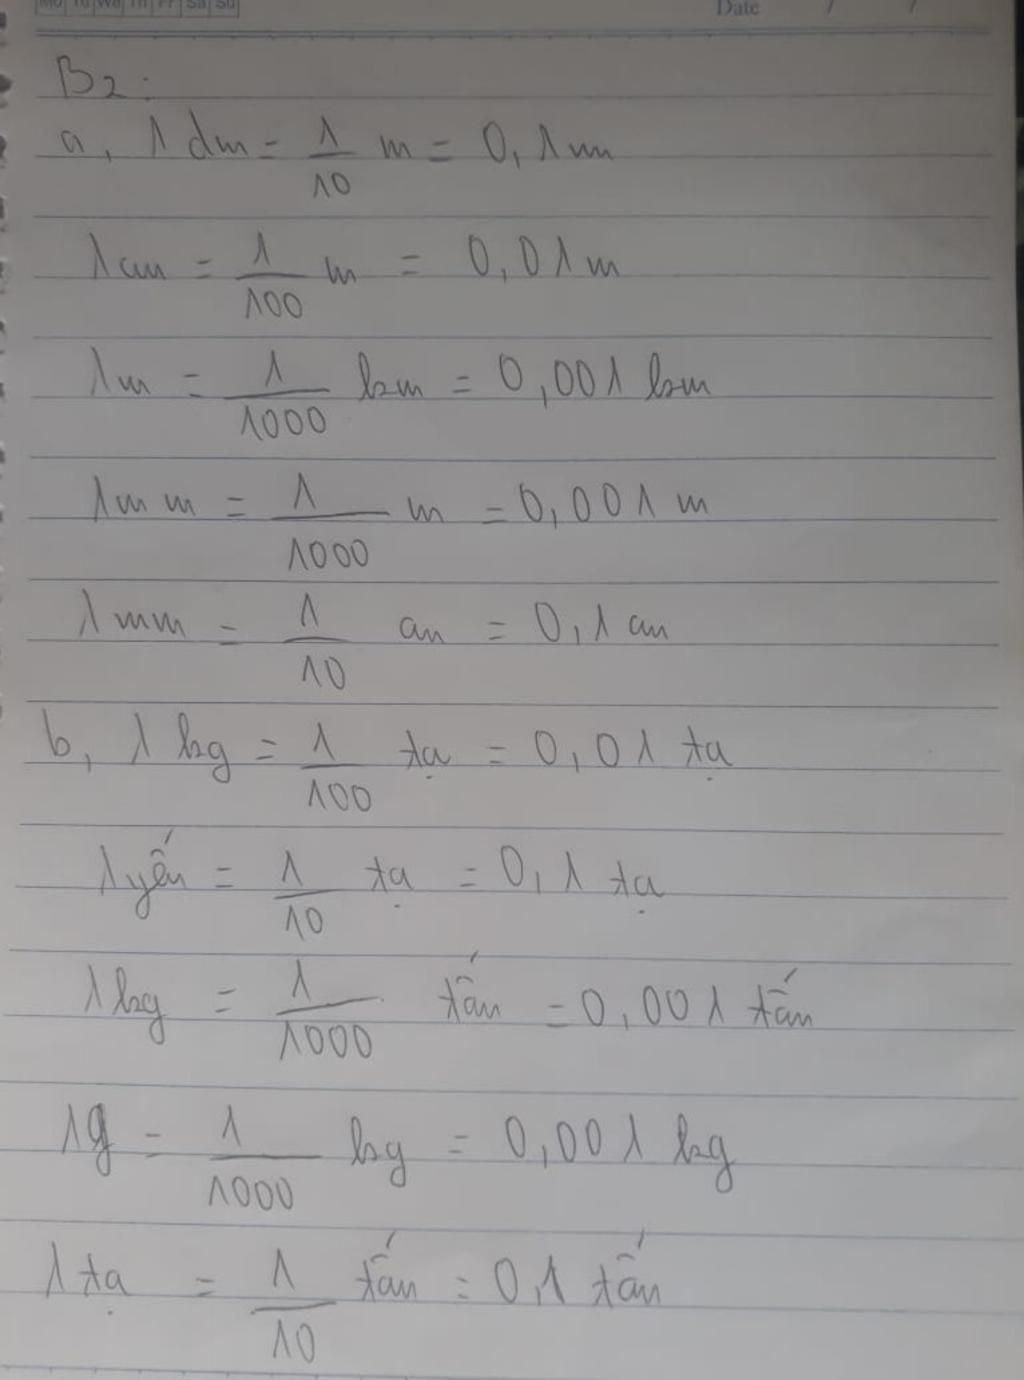 Mo Tu We Th Fr Sa Su
Date / /
B2:
a, 1 dm = 1/10 m = 0,1 m
1 cm = 1/100 m = 0,01 m
1m = 1/1000 km = 0,001 km
1mm = 1/1000 m = 0,001 m
1 mm = 1/10 cm = 0,1 cm
b, 1 kg = 1/100 tạ = 0,01 tạ
1 yến = 1/10 tạ = 0,1 tạ
1 kg = 1/1000 tấn = 0,001 tấn
1g = 1/1000 kg = 0,001 kg
1 tạ = 1/10 tấn = 0,1 tấn